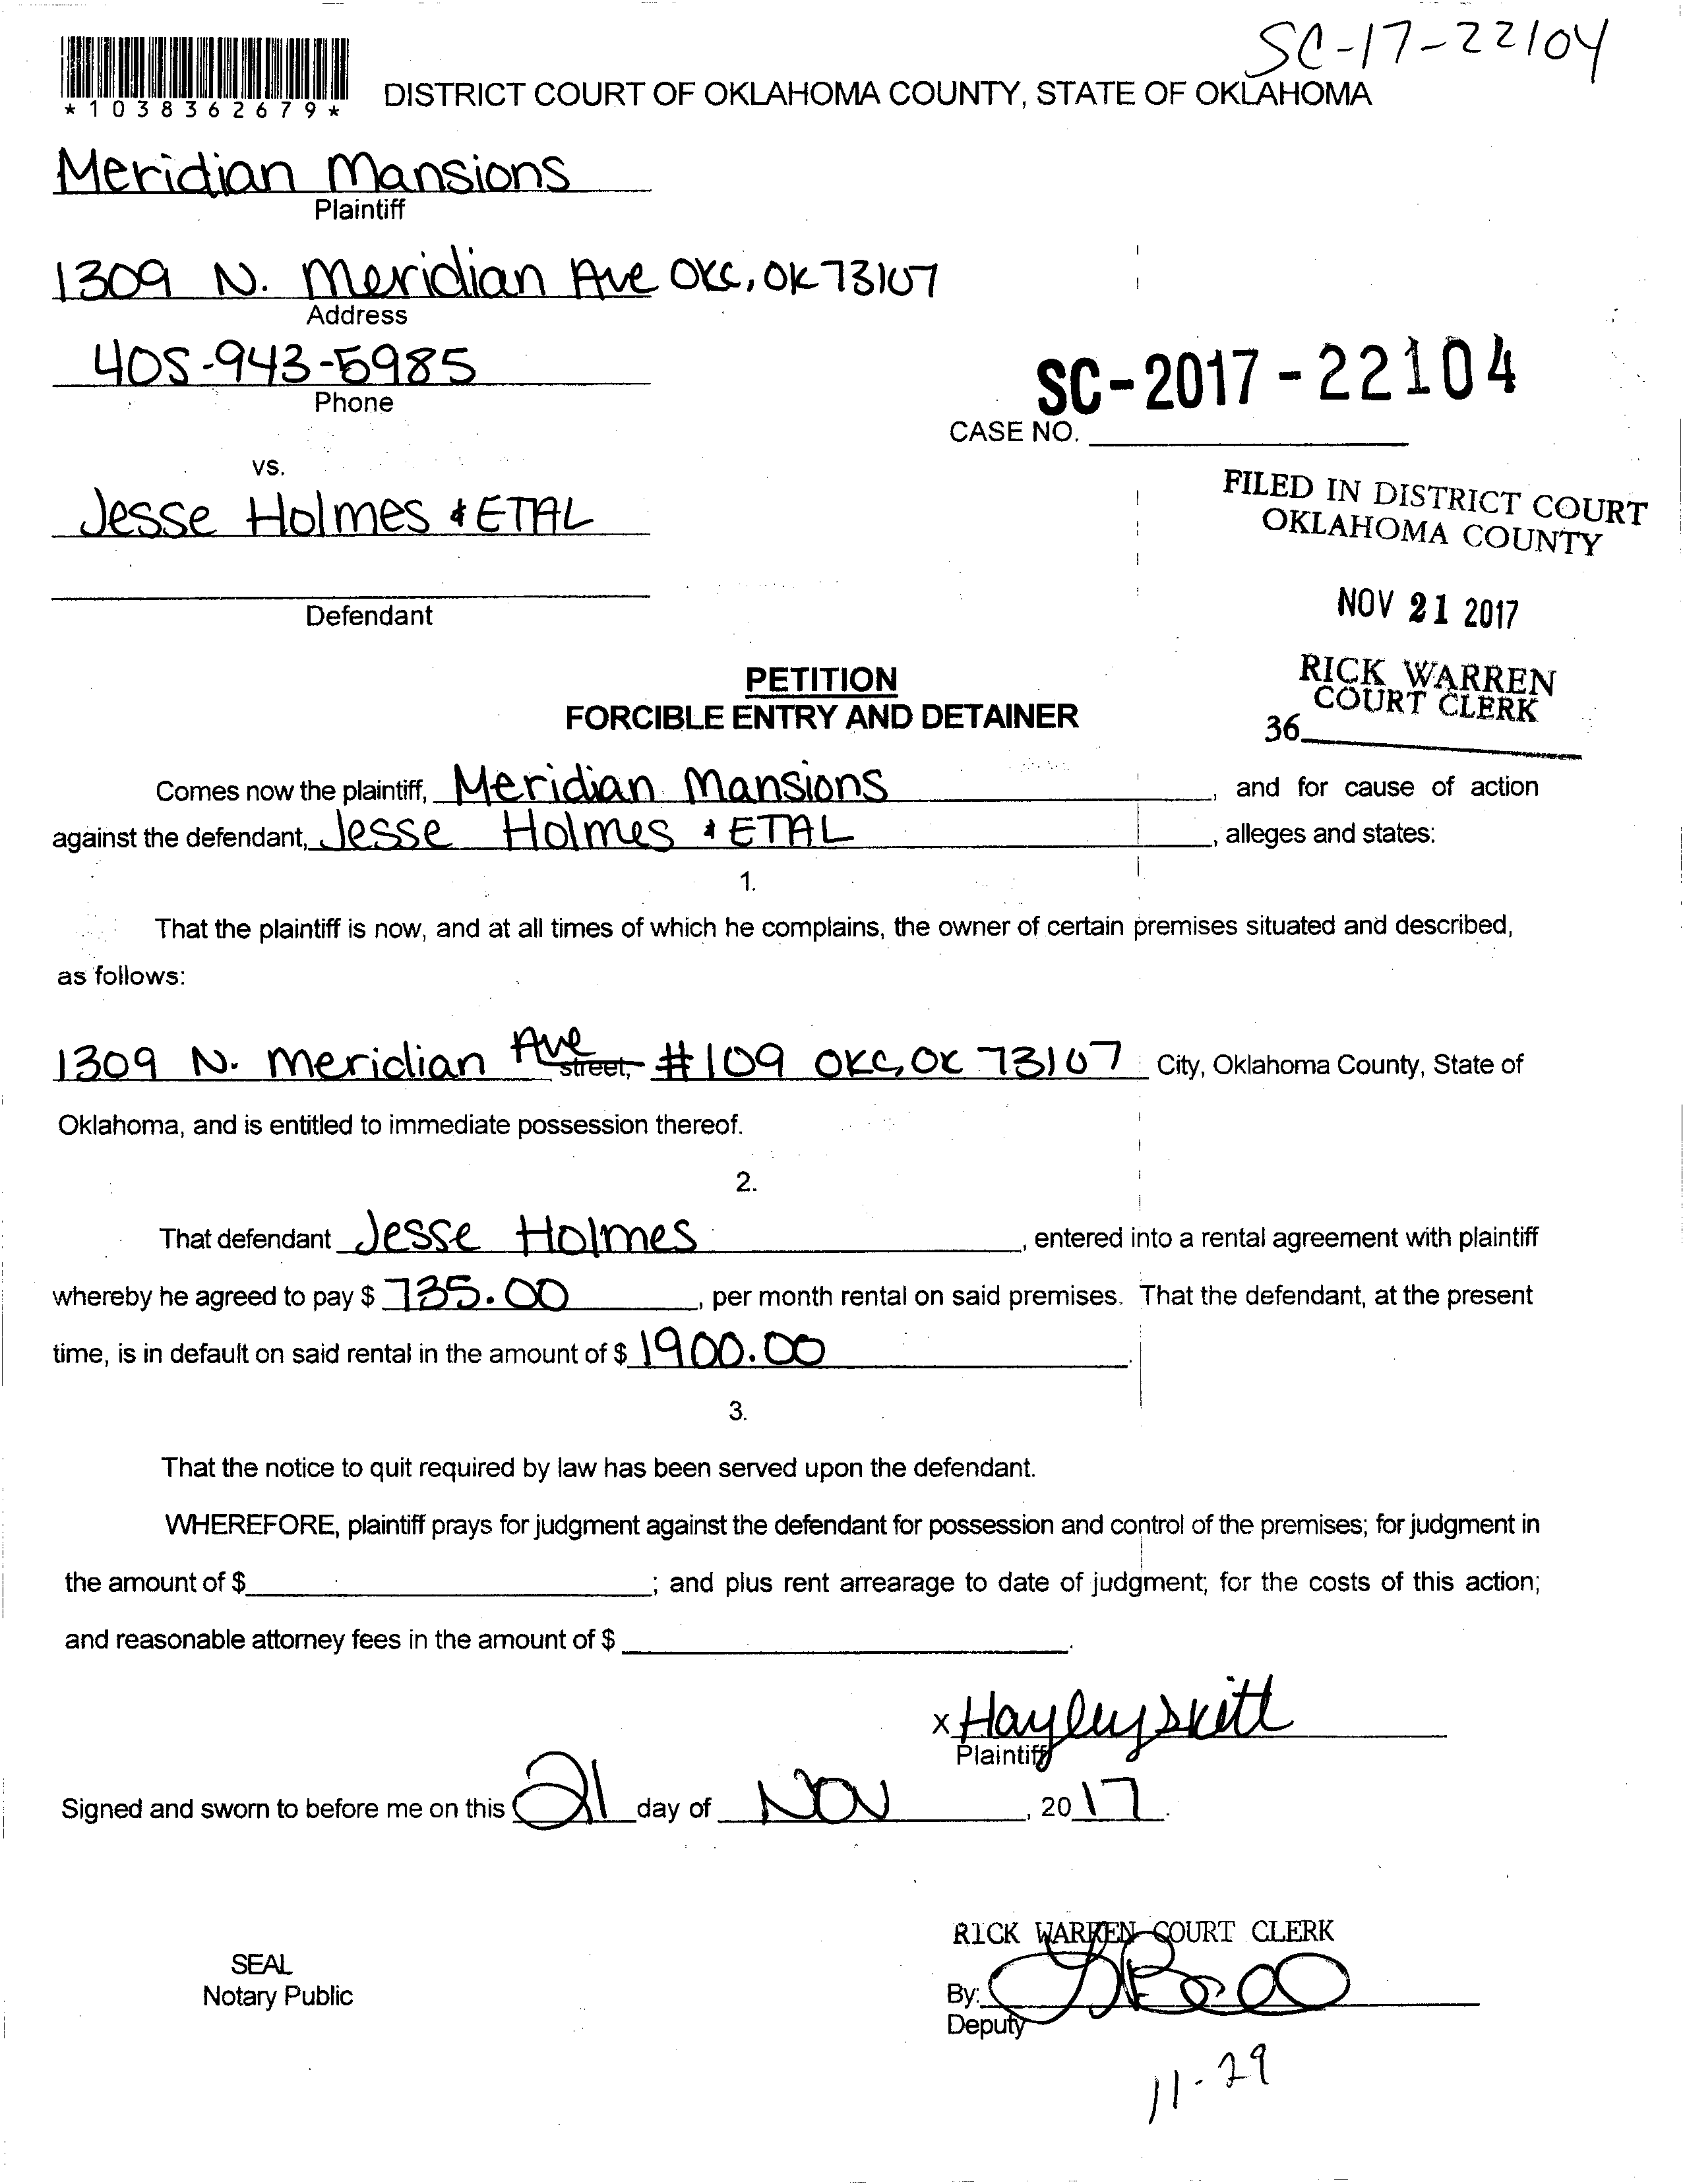 SC-17-22104
*1038362679*
DISTRICT COURT OF OKLAHOMA COUNTY, STATE OF OKLAHOMA
Meridian Mansions
Plaintiff
1309 N. Meridian Ave OKC, OK 73107
Address
405-943-5985
Phone
SC-2017-22104
CASE NO.
vs.
Jesse Holmes & ETAL
Defendant
FILED IN DISTRICT COURT
OKLAHOMA COUNTY
NOV 21 2017
RICK WARREN
COURT CLERK
36
PETITION
FORCIBLE ENTRY AND DETAINER
Comes now the plaintiff, Meridian Mansions, and for cause of action
against the defendant, Jesse Holmes & ETAL, alleges and states:
1.
That the plaintiff is now, and at all times of which he complains, the owner of certain premises situated and described,
as follows:
1309 N. Meridian Ave street, #109 OKC, OK 73107 City, Oklahoma County, State of
Oklahoma, and is entitled to immediate possession thereof.
2.
That defendant Jesse Holmes, entered into a rental agreement with plaintiff
whereby he agreed to pay $ 735.00, per month rental on said premises. That the defendant, at the present
time, is in default on said rental in the amount of $ 1900.00.
3.
That the notice to quit required by law has been served upon the defendant.
WHEREFORE, plaintiff prays for judgment against the defendant for possession and control of the premises; for judgment in
the amount of $ ; and plus rent arrearage to date of judgment; for the costs of this action;
and reasonable attorney fees in the amount of $ .
x Hayley Skitt
Plaintiff
Signed and sworn to before me on this 21 day of NOV, 2017.
RICK WARREN COURT CLERK
SEAL
Notary Public
By:
Deputy
11-29